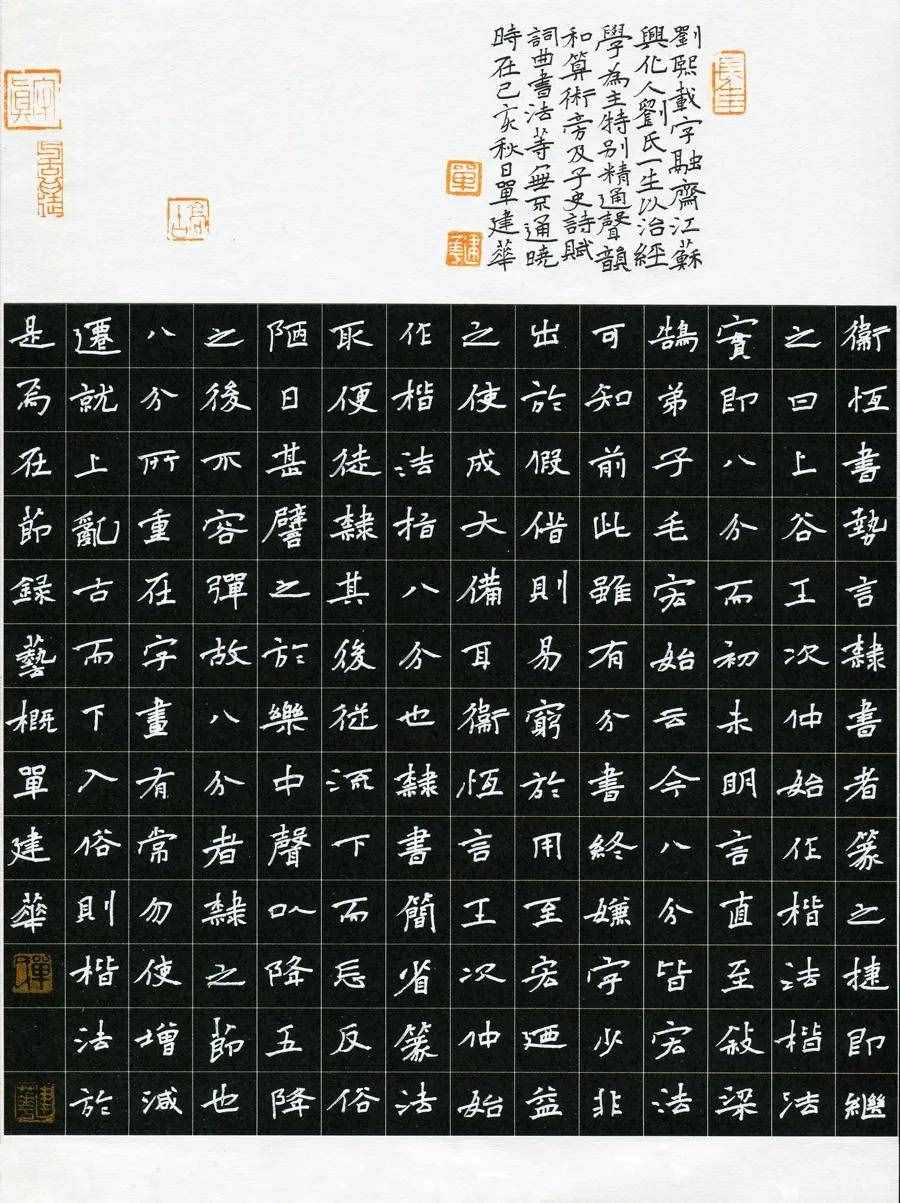 劉熙載字融齋江蘇
興化人劉氏一生以治經
學為主特别精通聲韻
和算術旁及子史詩賦
詞曲書法等無不通曉
時在己亥秋日單建華
單
建華
衛恆書勢言隸書者篆之捷即繼
之曰上谷王次仲始作楷法楷法
實即八分而初未明言直至敍梁
鵠弟子毛宏始云今八分皆宏法
可知前此雖有分書終嫌字少非
出於假借則易窮於用至宏迺益
之使成大備耳衛恆言王次仲始
作楷法指八分也隸書簡省篆法
取便徒隸其後從流下而忘反俗
陋日甚譬之於樂中聲以降五降
之後不容彈故八分者隸之節也
八分所重在字畫有常勿使增減
遷就上亂古而下入俗則楷法於
是為在節録藝概單建華